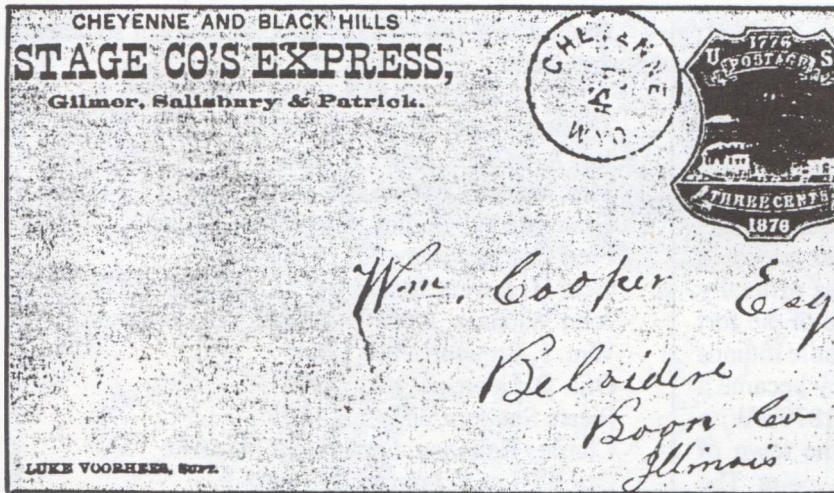 CHEYENNE AND BLACK HILLS
STAGE CO'S EXPRESS,
Gilmer, Salisbury & Patrick.
CHEYENNE
WYO
1776
U S
POSTAGE
THREE CENTS
1876
Wm. Cooper Esq
Belvidere
Boon Co
Illinois
LUKE VOORHEES, SUPT.